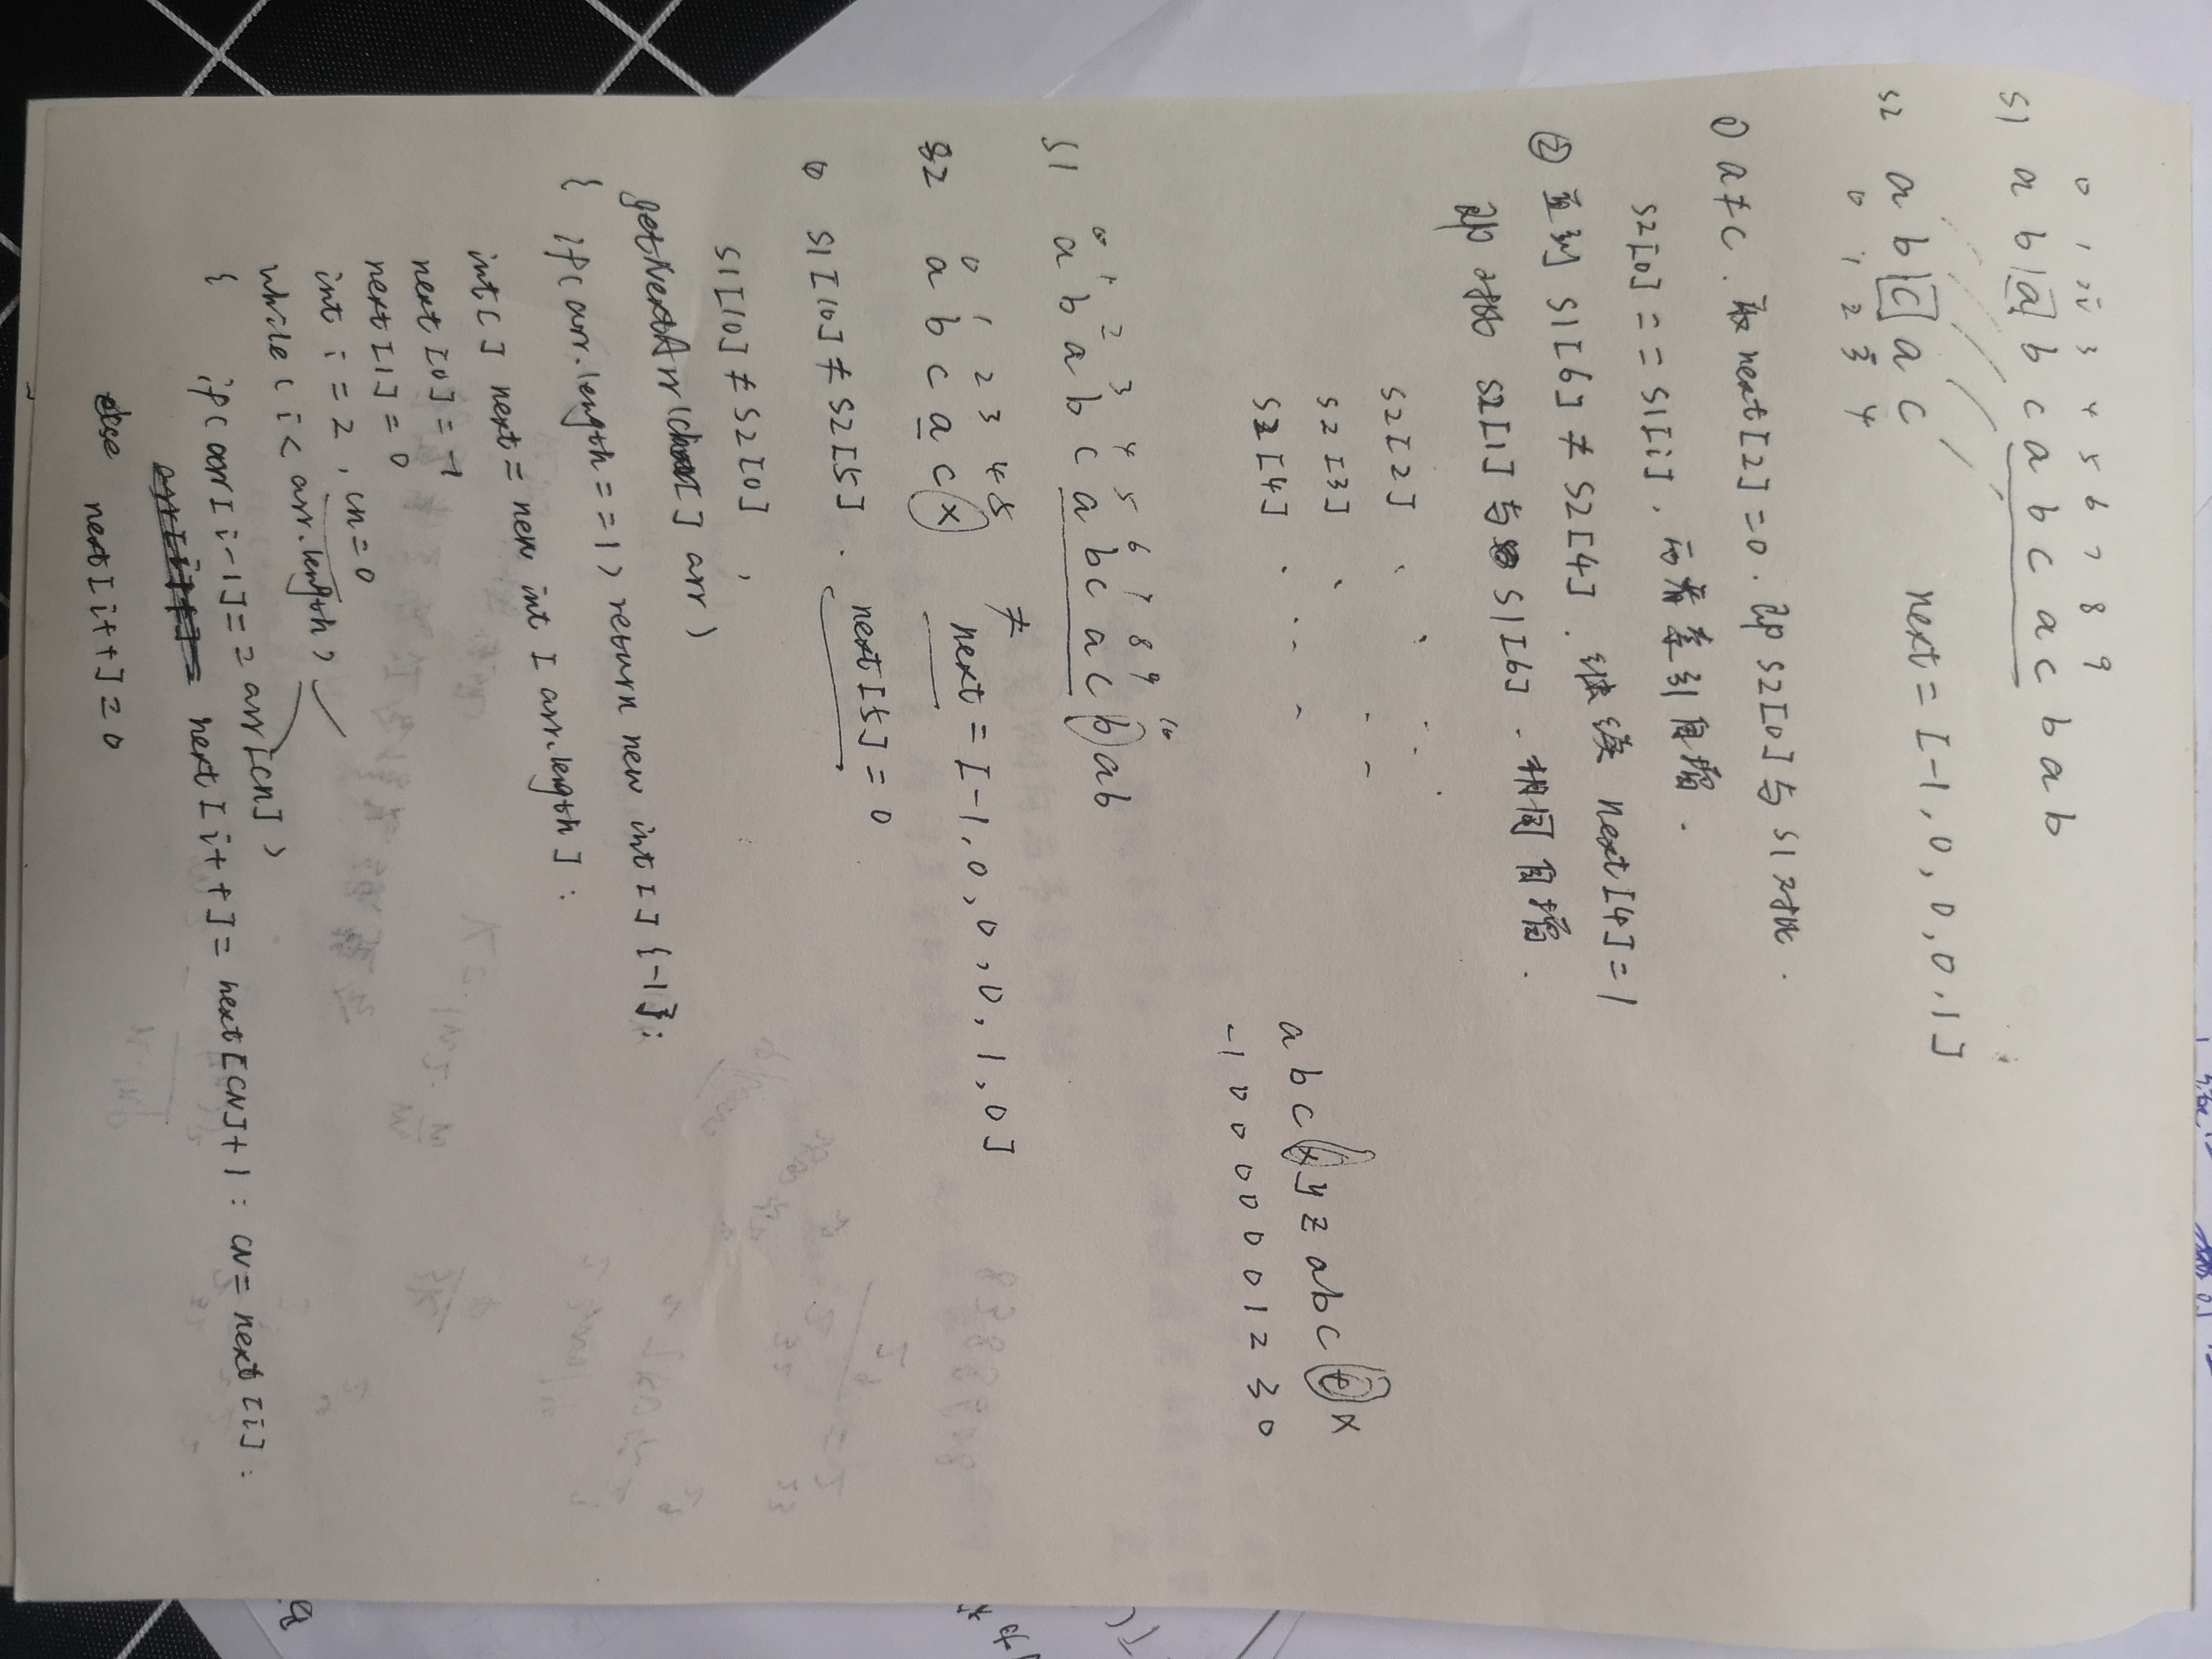 0 1 2 3 4 5 6 7 8 9
S1 a b a b c a b c a c b a b
S2 a b c a c next = [-1, 0, 0, 0, 1]
0 1 2 3 4
① a≠c. 取 next[2]=0. 即 S2[0] 与 S1 对比.
S2[0] == S1[i], 两者索引自增.
② 直到 S1[6] ≠ S2[4]. 继续 next[4]=1
即 对比 S2[1] 与 S1[6]. 相同自增.
S2[2]
S2[3]
S2[4]
a b c x y z a b c t x
-1 0 0 0 0 0 0 1 2 3 0
0 1 2 3 4 5 6 7 8 9 10
S1 a b a b c a b c a c b a b
0 1 2 3 4 5 ≠
S2 a b c a c x next = [-1, 0, 0, 0, 1, 0]
S1[10] ≠ S2[5]. next[5] = 0
S1[10] ≠ S2[0],
getNextArr(char[] arr)
{ if(arr.length==1) return new int[]{-1};
int[] next = new int[arr.length];
next[0] = -1
next[1] = 0
int i = 2, cn = 0
while (i < arr.length)
{ if(arr[i-1] == arr[cn])
next[i++] = next[cn]+1; cn = next[i];
else next[i++] = 0